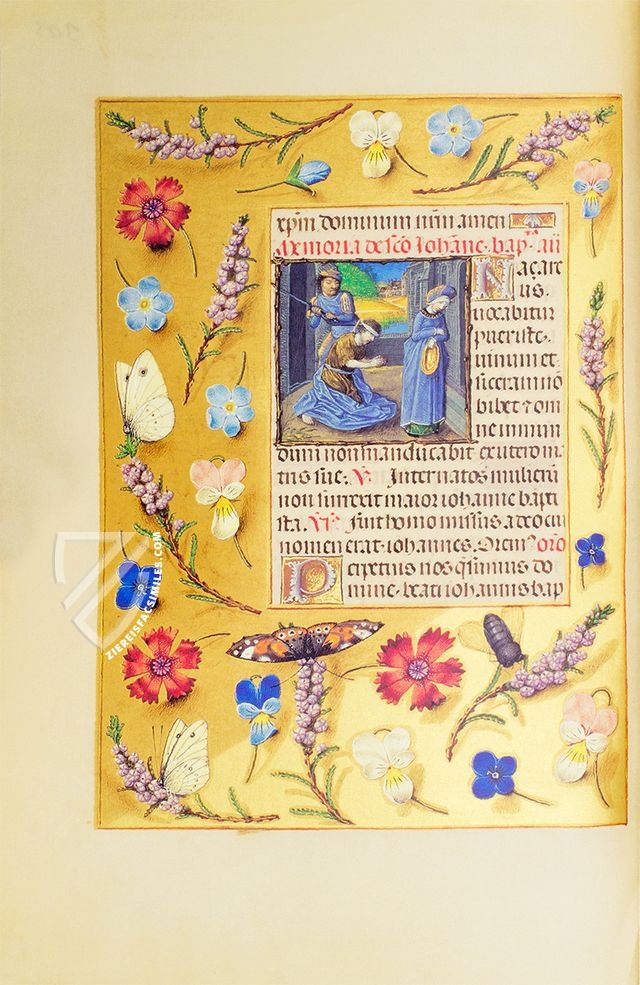 xp̄m dominum nr̄m amen
Memoria de sc̄o Iohanne. bap. an̄
Naçare
us.
uocabitur
puer iste.
uinum et
siceram no
bibet ⁊ om
ne immun
dum non manducabit ex utero m̄a
tris sue. V. Inter natos mulierū
non surrexit maior iohanne bapti
sta. R. fuit homo missus a deo cui
nomen erat. iohannes. Orem⁹. oro
Perpetuis nos q̄sumus do
mine. beati iohannis bap
ZIEREISFACSIMILES.COM